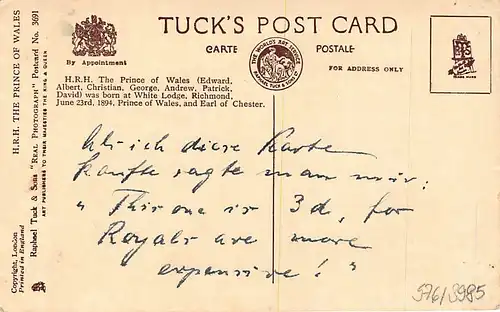 TUCK'S POST CARD
CARTE POSTALE
By Appointment
THE WORLD'S ART SERVICE
RAPHAEL TUCK & SONS LTD
FOR ADDRESS ONLY
TRADE MARK
H.R.H. The Prince of Wales (Edward,
Albert, Christian, George, Andrew, Patrick,
David) was born at White Lodge, Richmond,
June 23rd, 1894, Prince of Wales, and Earl of Chester.
H.R.H. THE PRINCE OF WALES
Raphael Tuck & Sons "REAL PHOTOGRAPH" Postcard No. 3691
ART PUBLISHERS TO THEIR MAJESTIES THE KING & QUEEN
Copyright, London
Printed in England
Als ich diese Karte
kaufte sagte man mir:
"This one is 3d, for
Royals are more
expensive!"
576/3985